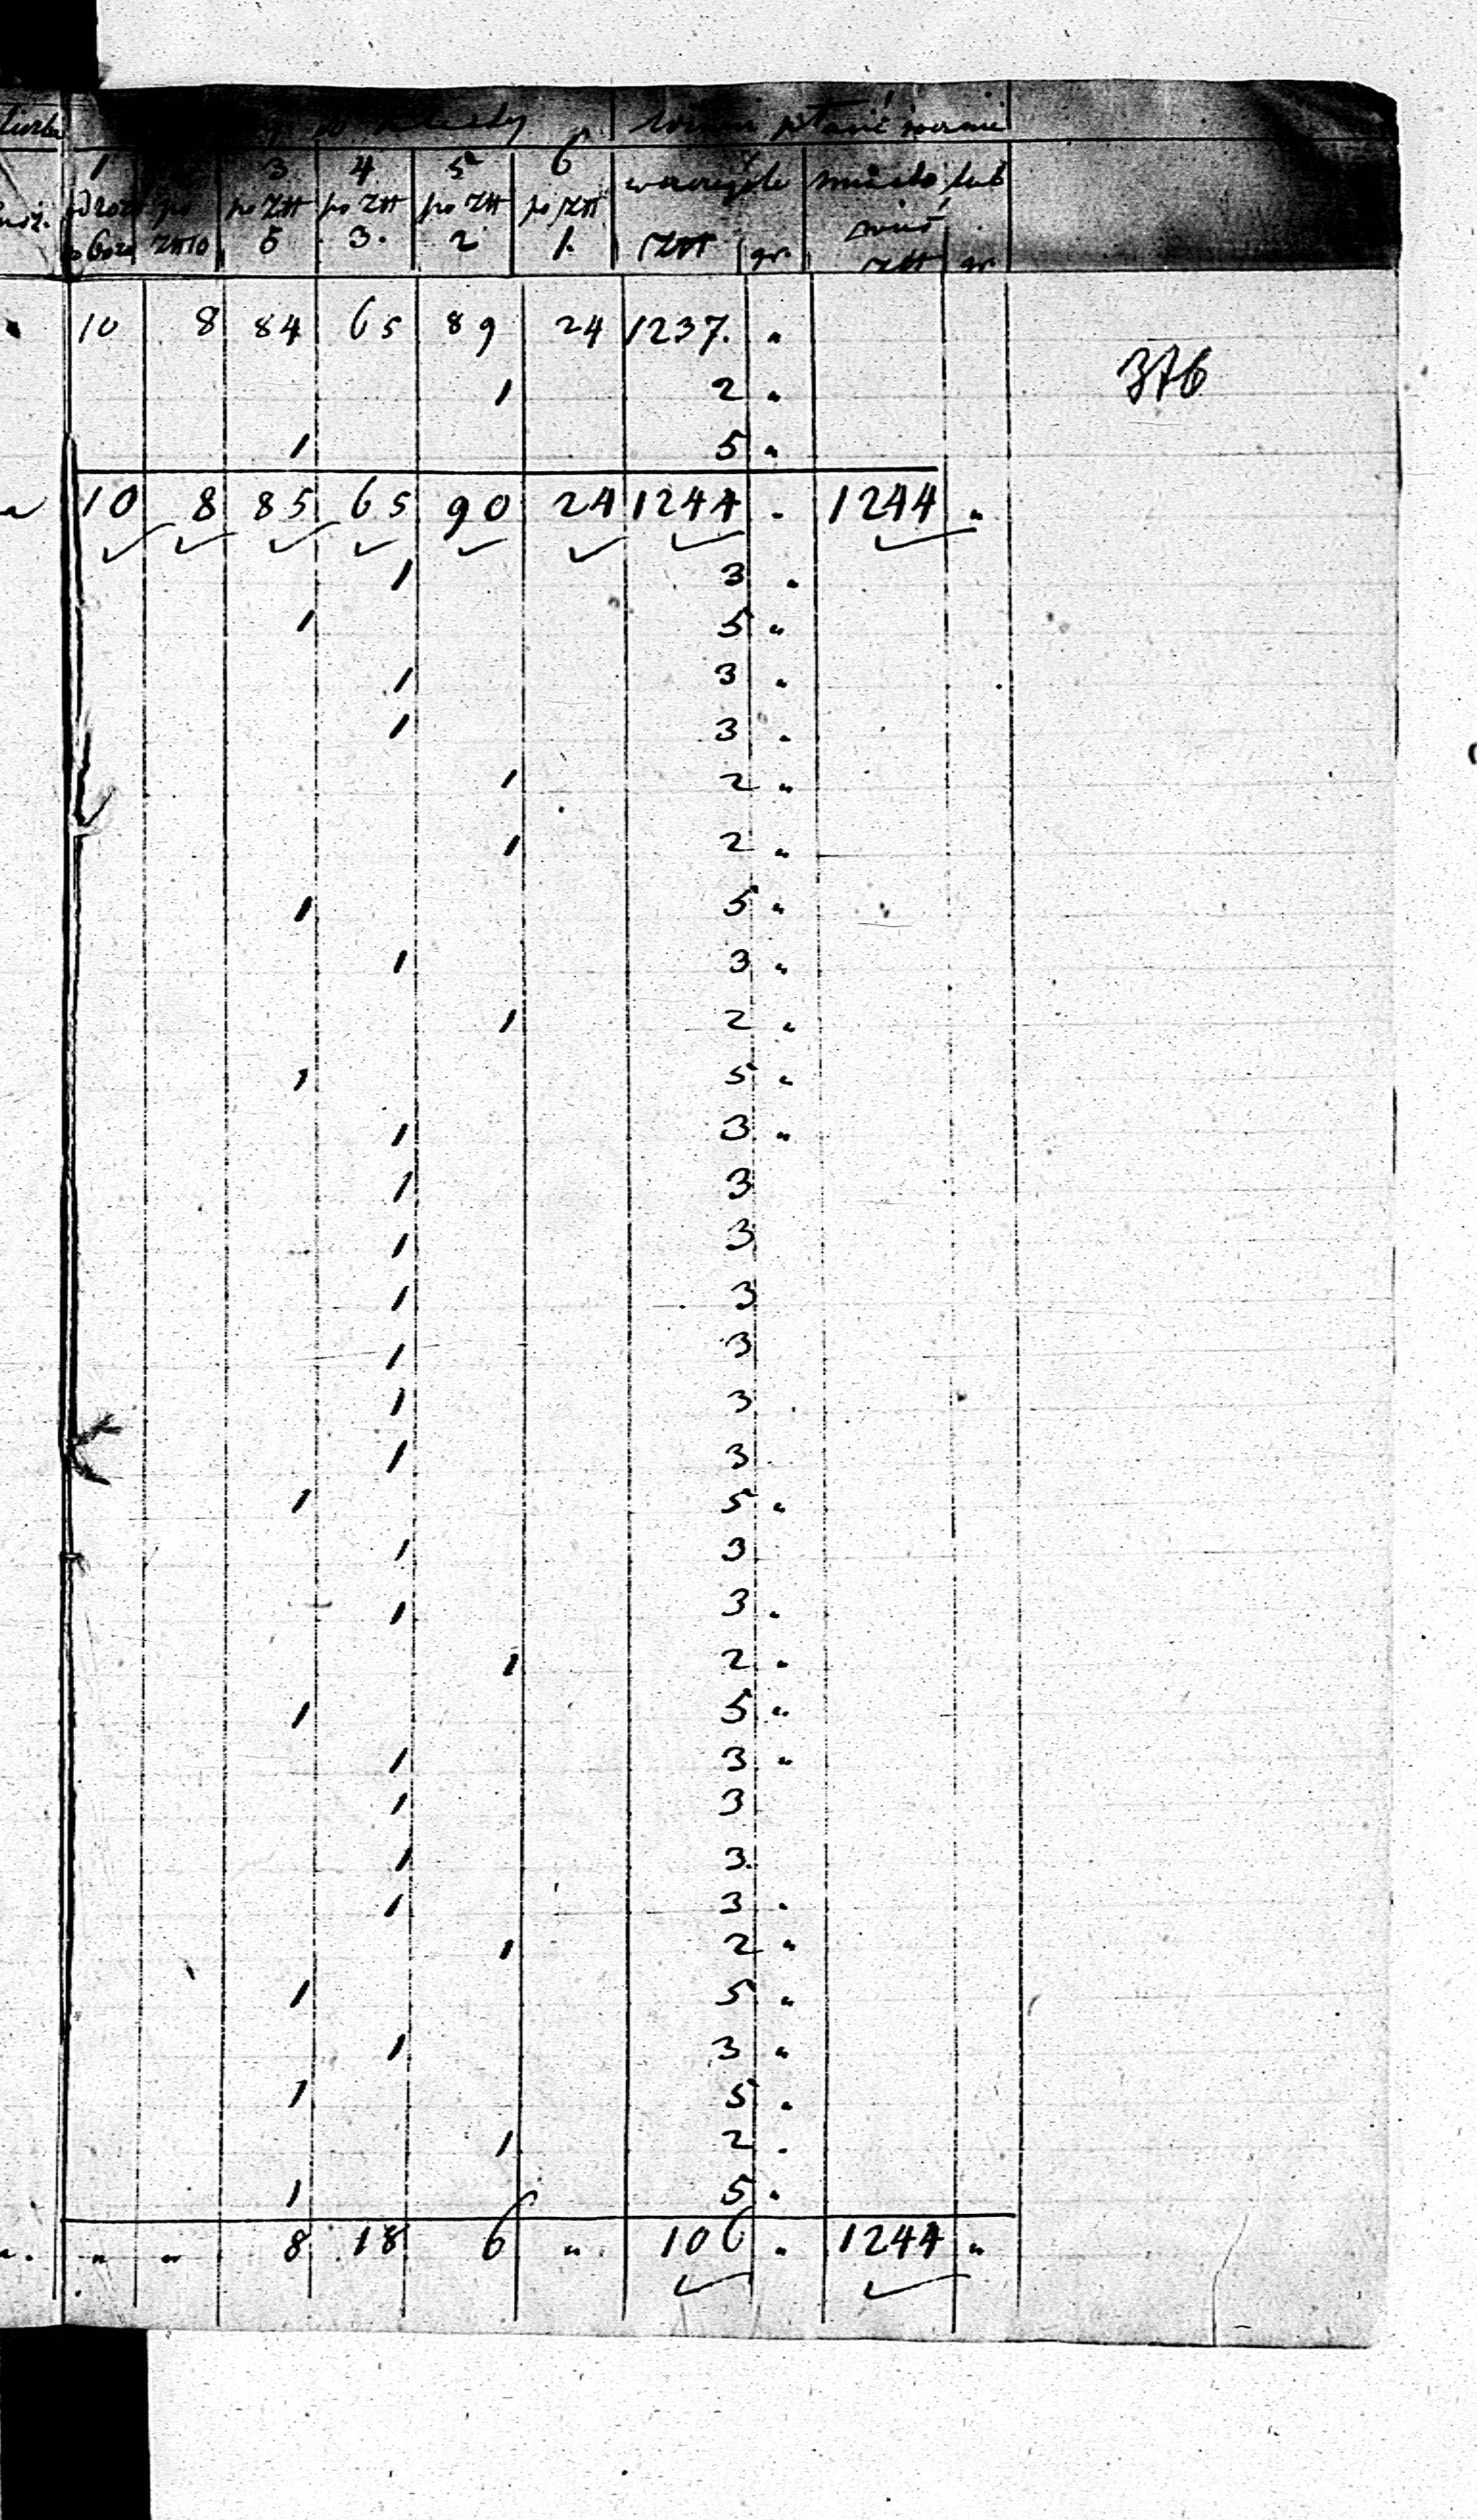 1 3 4 5 6
po po ZŁł po ZŁł po ZŁł po ZŁł miasto lub
5 3. 2 1. gr.
gr
10 8 84 65 89 24 1237. "
376
1 2 "
1 5 "
10 8 85 65 90 24 1244 . 1244 "
1 3 .
1 5 "
1 3 .
1 3 .
1 2 "
1 2 "
1 5 "
1 3 "
1 2 "
1 5 "
1 3 "
1 3
1 3
1 3
1 3
1 3
1 3
1 5 "
1 3
1 3 .
1 2 "
1 5 "
1 3 "
1 3
1 3.
1 3 .
1 2 "
1 5 "
1 3 "
1 5 .
1 2 .
1 5 .
" " 8 18 6 " 106 . 1244 "